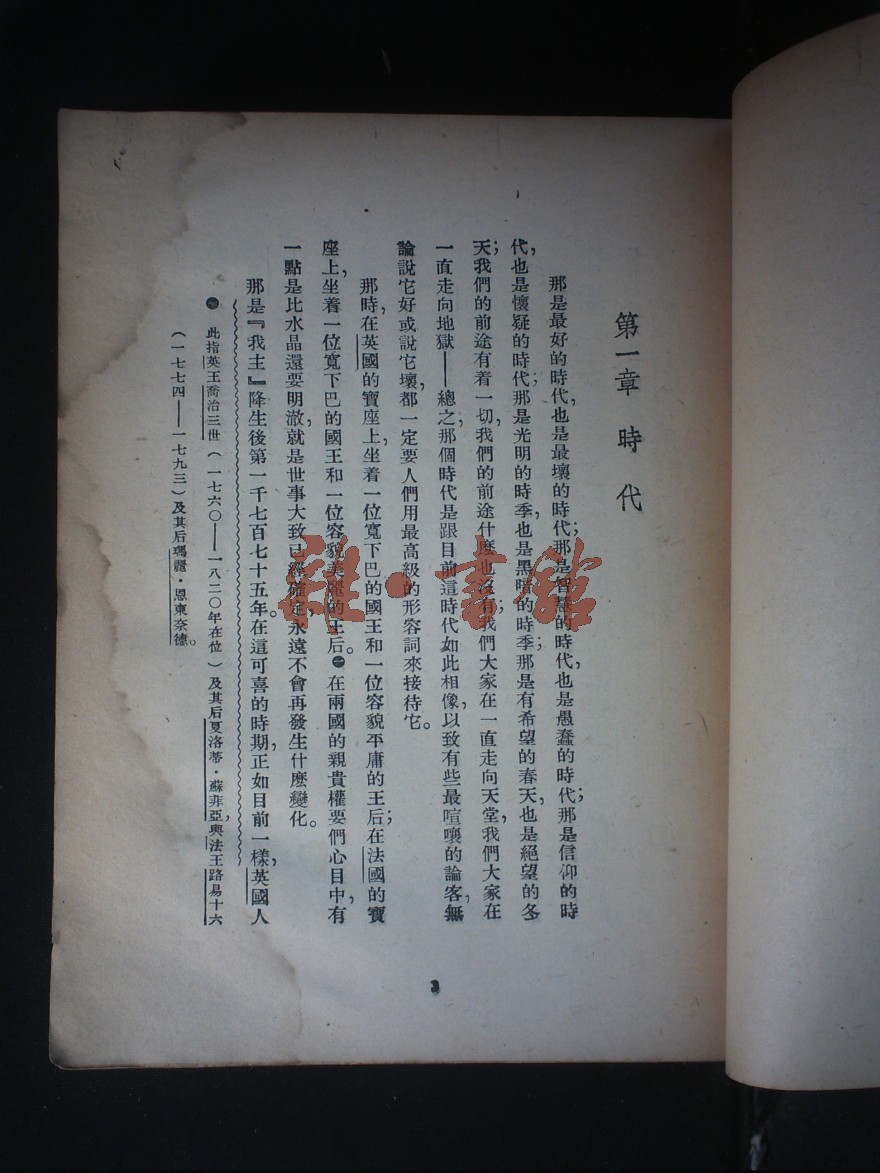 第一章 時代
那是最好的時代，也是最壞的時代；那是智慧的時代，也是愚蠢的時代；那是信仰的時
代，也是懷疑的時代；那是光明的時季，也是黑暗的時季；那是有希望的春天，也是絕望的冬
天；我們的前途有着一切，我們的前途什麼也沒有；我們大家在一直走向天堂，我們大家在
一直走向地獄——總之，那個時代是跟目前這時代如此相像，以致有些最喧嚷的論客，無
論說它好或說它壞，都一定要人們用最高級的形容詞來接待它。
那時，在英國的寶座上，坐着一位寬下巴的國王和一位容貌平庸的王后；在法國的寶
座上，坐着一位寬下巴的國王和一位容貌美麗的王后。㊀在兩國的親貴權要們心目中，有
一點是比水晶還要明澈，就是世事大致已經確定，永遠不會再發生什麼變化。
那是『我主』降生後第一千七百七十五年。在這可喜的時期，正如目前一樣，英國人
㊀ 此指英王喬治三世（一七六〇——一八二〇年在位）及其后夏洛蒂·蘇菲亞，與法王路易十六
（一七七四——一七九三）及其后瑪麗·恩東奈德。
3
雜·書館